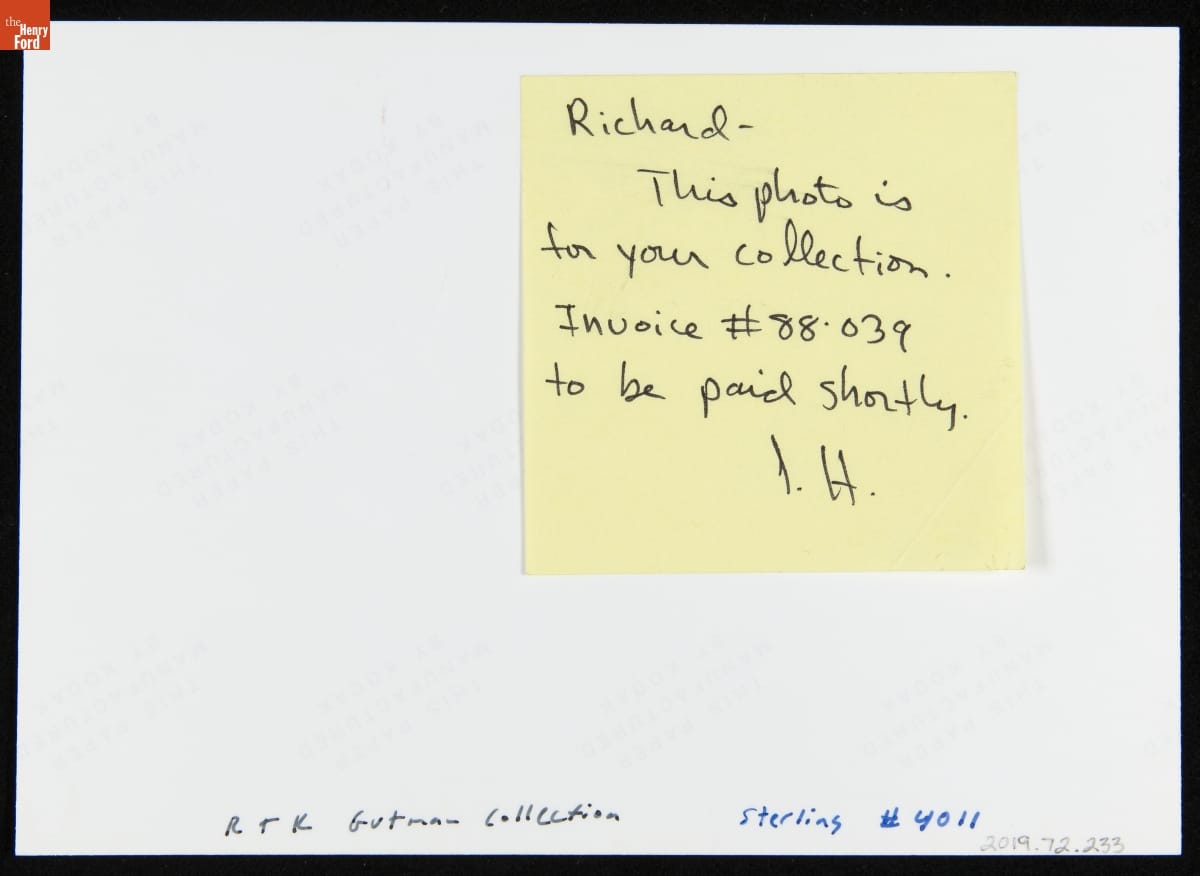 the
Henry
Ford
Richard-
This photo is
for your collection.
Invoice #88.039
to be paid shortly.
I. H.
THIS PAPER
MANUFACTURED
BY KODAK
RTK Gutman Collection
Sterling #4011
2019.72.233